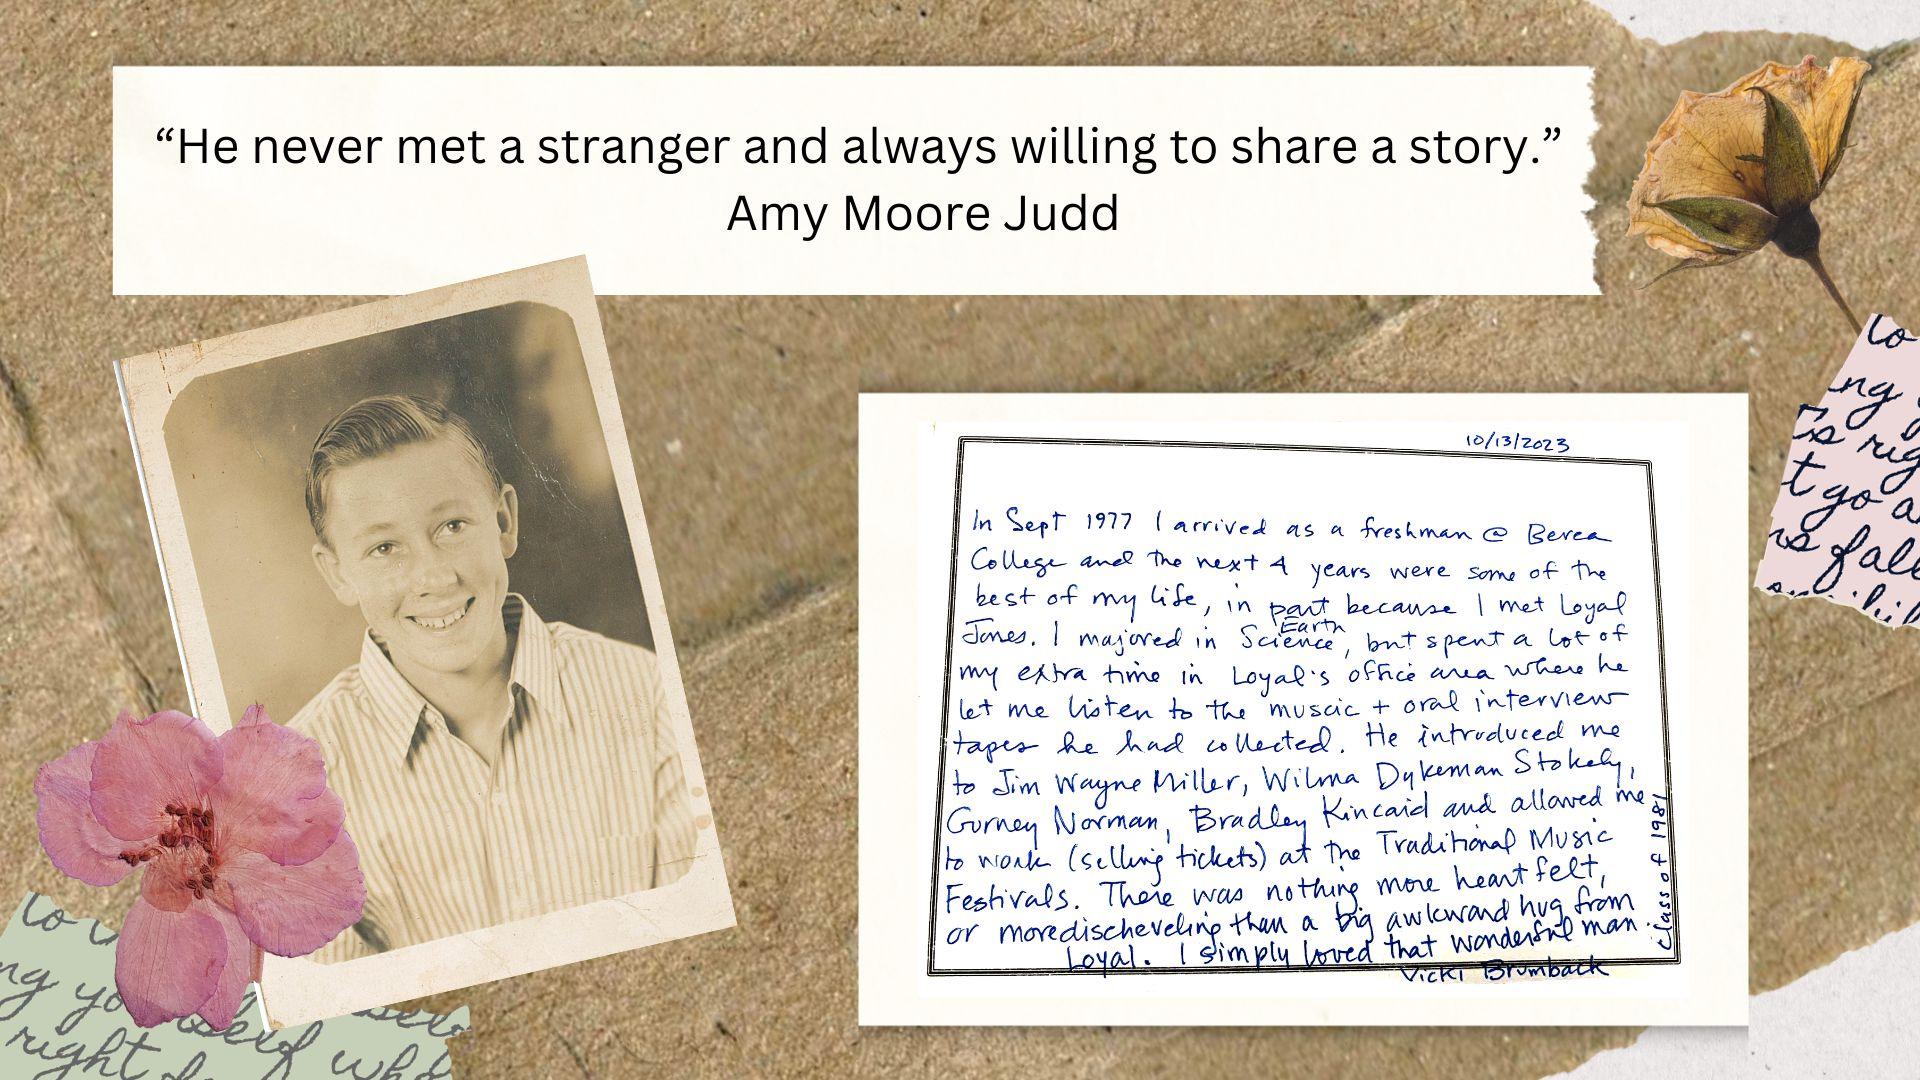 “He never met a stranger and always willing to share a story.”
Amy Moore Judd
10/13/2023
In Sept 1977 I arrived as a freshman @ Berea
College and the next 4 years were some of the
best of my life, in part because I met Loyal
Jones. I majored in Earth Science, but spent a lot of
my extra time in Loyal's office area where he
let me listen to the muscic + oral interview
tapes he had collected. He introduced me
to Jim Wayne Miller, Wilma Dykeman Stokely,
Gurney Norman, Bradley Kincaid and allowed me
to work (selling tickets) at the Traditional Music
Festivals. There was nothing more heartfelt,
or more discheveling than a big awkward hug from
Loyal. I simply loved that wonderful man.
Vicki Brumback
class of 1981
to
ng
Ts rig
t go a
rs fall
to
ng yourself
right
self who